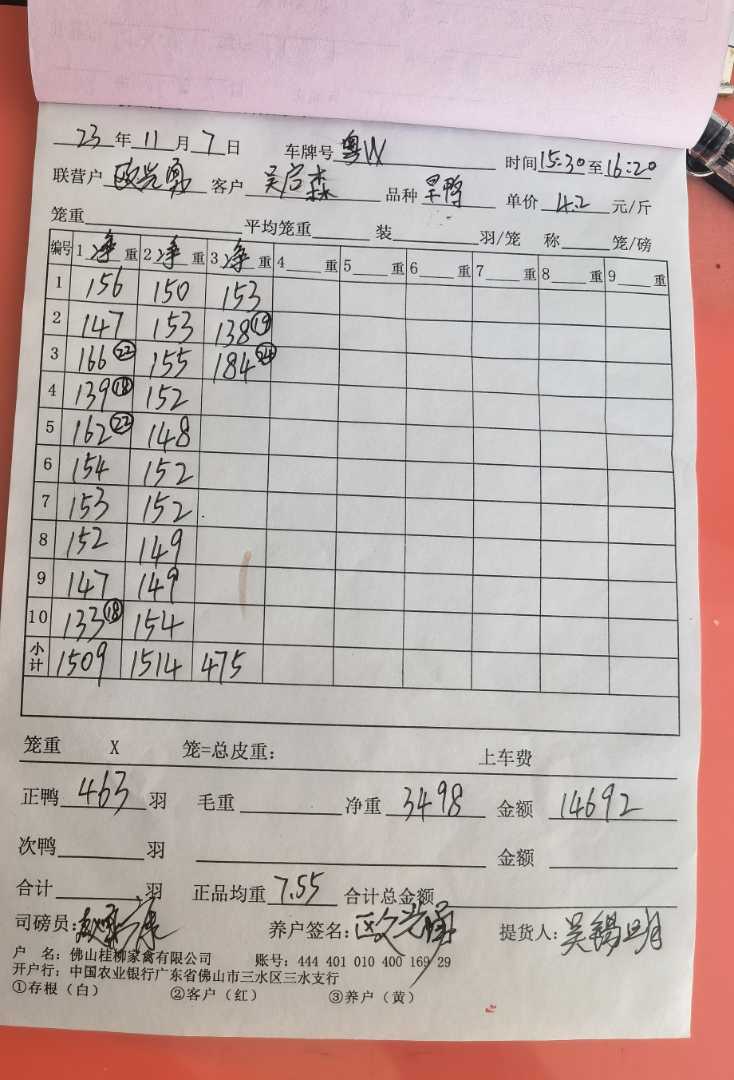 23年11月7日 车牌号粤W 时间15:30至16:20
联营户欧光勇 客户吴启森 品种旱鸭 单价4.2元/斤
笼重 平均笼重 装 羽/笼 称 笼/磅
编号 1净重 2净重 3净重 4 重 5 重 6 重 7 重 8 重 9 重
1 156 150 153
2 147 153 138⑲
3 166㉒ 155 184㉔
4 139⑱ 152
5 162㉒ 148
6 154 152
7 153 152
8 152 149
9 147 149
10 133⑱ 154
小计 1509 1514 475
笼重 X 笼=总皮重: 上车费
正鸭463羽 毛重 净重3498 金额14692
次鸭 羽 金额
合计 羽 正品均重7.55 合计总金额
司磅员: 养户签名:欧光勇 提货人:吴锡明
户 名:佛山桂柳家禽有限公司 账号:444 401 010 400 169 29
开户行:中国农业银行广东省佛山市三水区三水支行
①存根(白) ②客户(红) ③养户(黄)